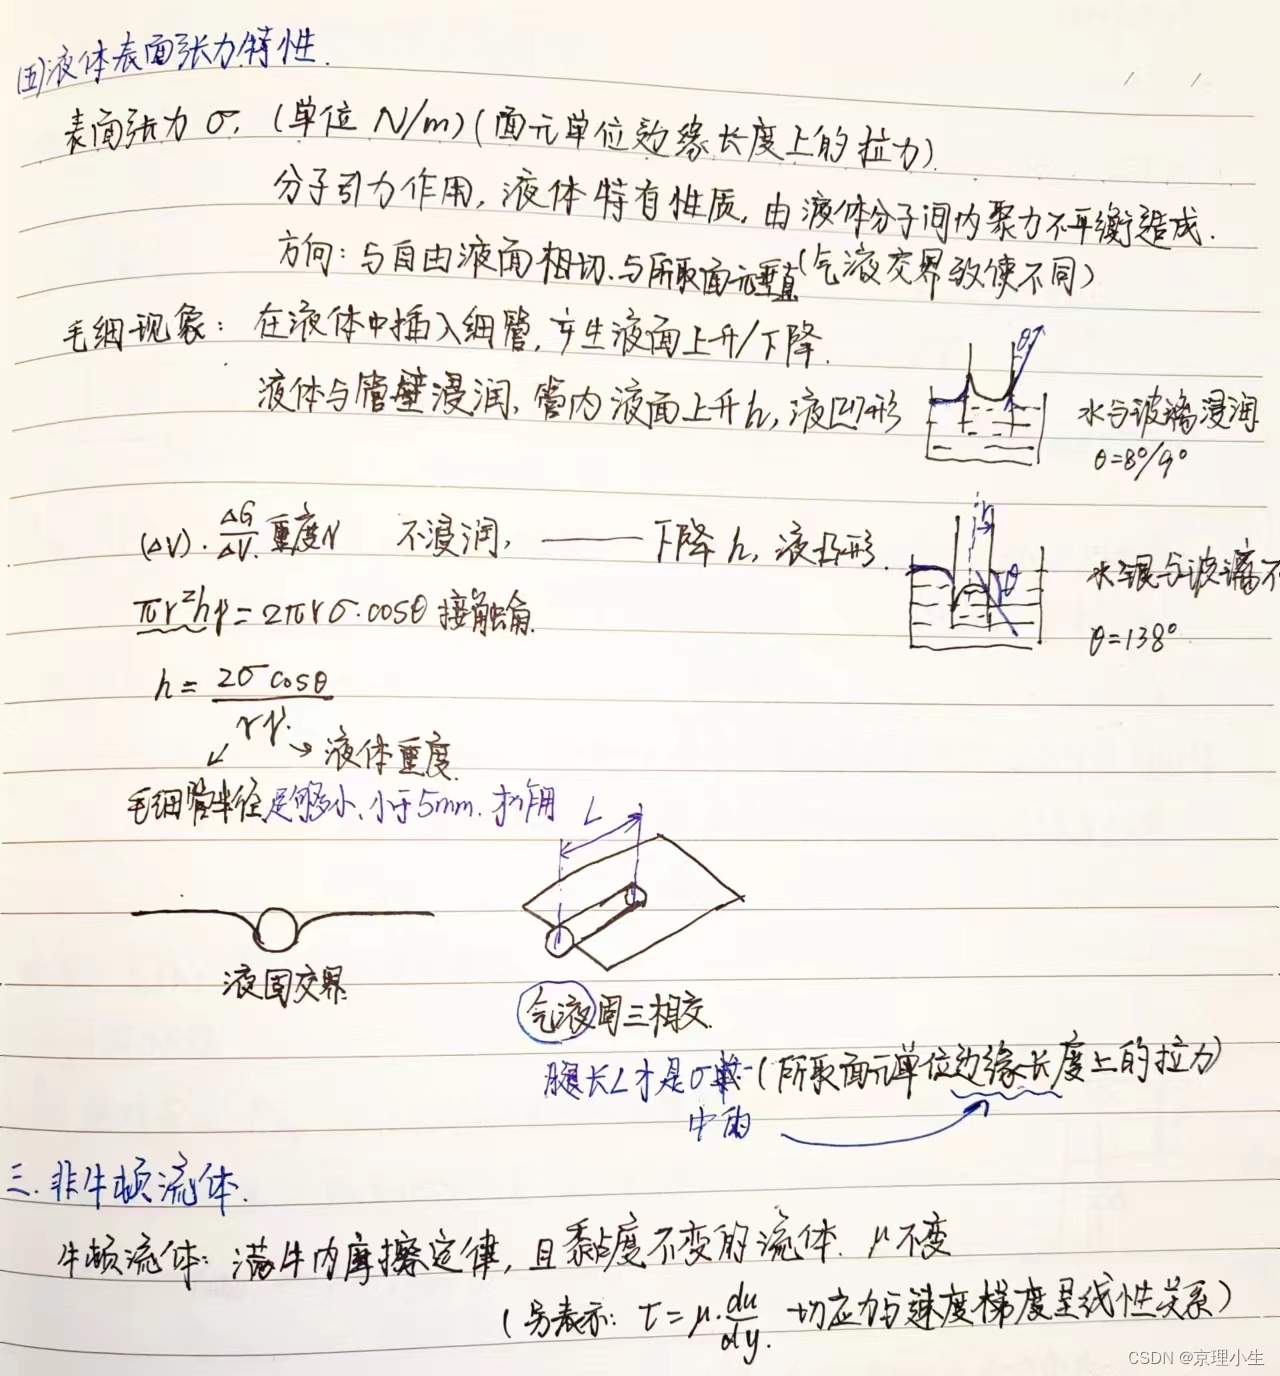 (五)液体表面张力特性.
表面张力 σ. (单位 N/m)(面元单位边缘长度上的拉力)
分子引力作用, 液体特有性质, 由液体分子间内聚力不平衡造成.
方向: 与自由液面相切、与所取面元垂直(气液交界致使不同)
毛细现象: 在液体中插入细管, 产生液面上升/下降.
液体与管壁浸润, 管内液面上升h, 液凹形
水与玻璃浸润
θ=8°/9°
(ΔV)·ΔG/ΔV 重度N 不浸润, —— 下降 h, 液凸形.
水银与玻璃不
πr²hγ=2πrσ·cosθ 接触角.
θ=138°
h = 2σcosθ/rγ
液体重度
毛细管半径足够小、小于5mm. 才作用
L
液固交界
气液固三相交.
腿长L才是σ (所取面元单位边缘长度上的拉力)
中的
三. 非牛顿流体.
牛顿流体: 满牛内摩擦定律, 且黏度不变的流体. μ不变
(另表示: τ=μ·du/dy. 切应力与速度梯度呈线性关系)
CSDN @京理小生